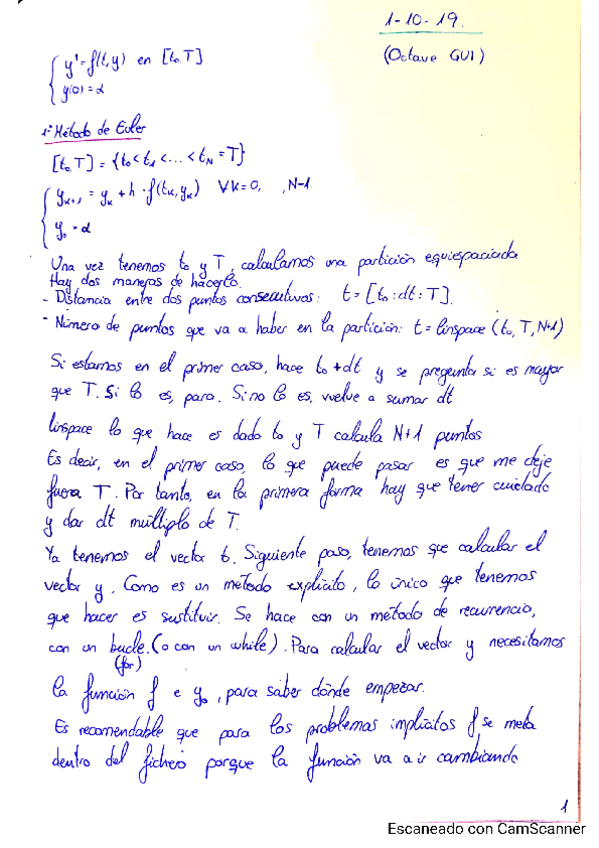 1-10-19.
(Octave GUI)
{ y'=f(t,y) en [t₀,T]
y(0)=α
1º Método de Euler
[t₀,T] = {t₀<t₁<...<t_N=T}
{ y_{k+1} = y_k + h·f(t_k,y_k) ∀k=0, ,N-1
y₀=α
Una vez tenemos t₀ y T, calculamos una partición equiespaciada
Hay dos maneras de hacerlo.
- Distancia entre dos puntos consecutivos: t=[t₀:dt:T].
- Número de puntos que va a haber en la partición: t=linspace(t₀,T,N+1)
Si estamos en el primer caso, hace t₀+dt y se pregunta si es mayor
que T. Si lo es, para. Si no lo es, vuelve a sumar dt
linspace lo que hace es dado t₀ y T calcula N+1 puntos
Es decir, en el primer caso, lo que puede pasar es que me deje
fuera T. Por tanto, en la primera forma hay que tener cuidado
y dar dt múltiplo de T.
Ya tenemos el vector t. Siguiente paso, tenemos que calcular el
vector y. Como es un método explícito, lo único que tenemos
que hacer es sustituir. Se hace con un método de recurrencia,
con un bucle.(o con un while). Para calcular el vector y necesitamos
(for)
la función f e y₀, para saber dónde empezar.
Es recomendable que para los problemas implícitos f se meta
dentro del fichero porque la función va a ir cambiando
1
Escaneado con CamScanner